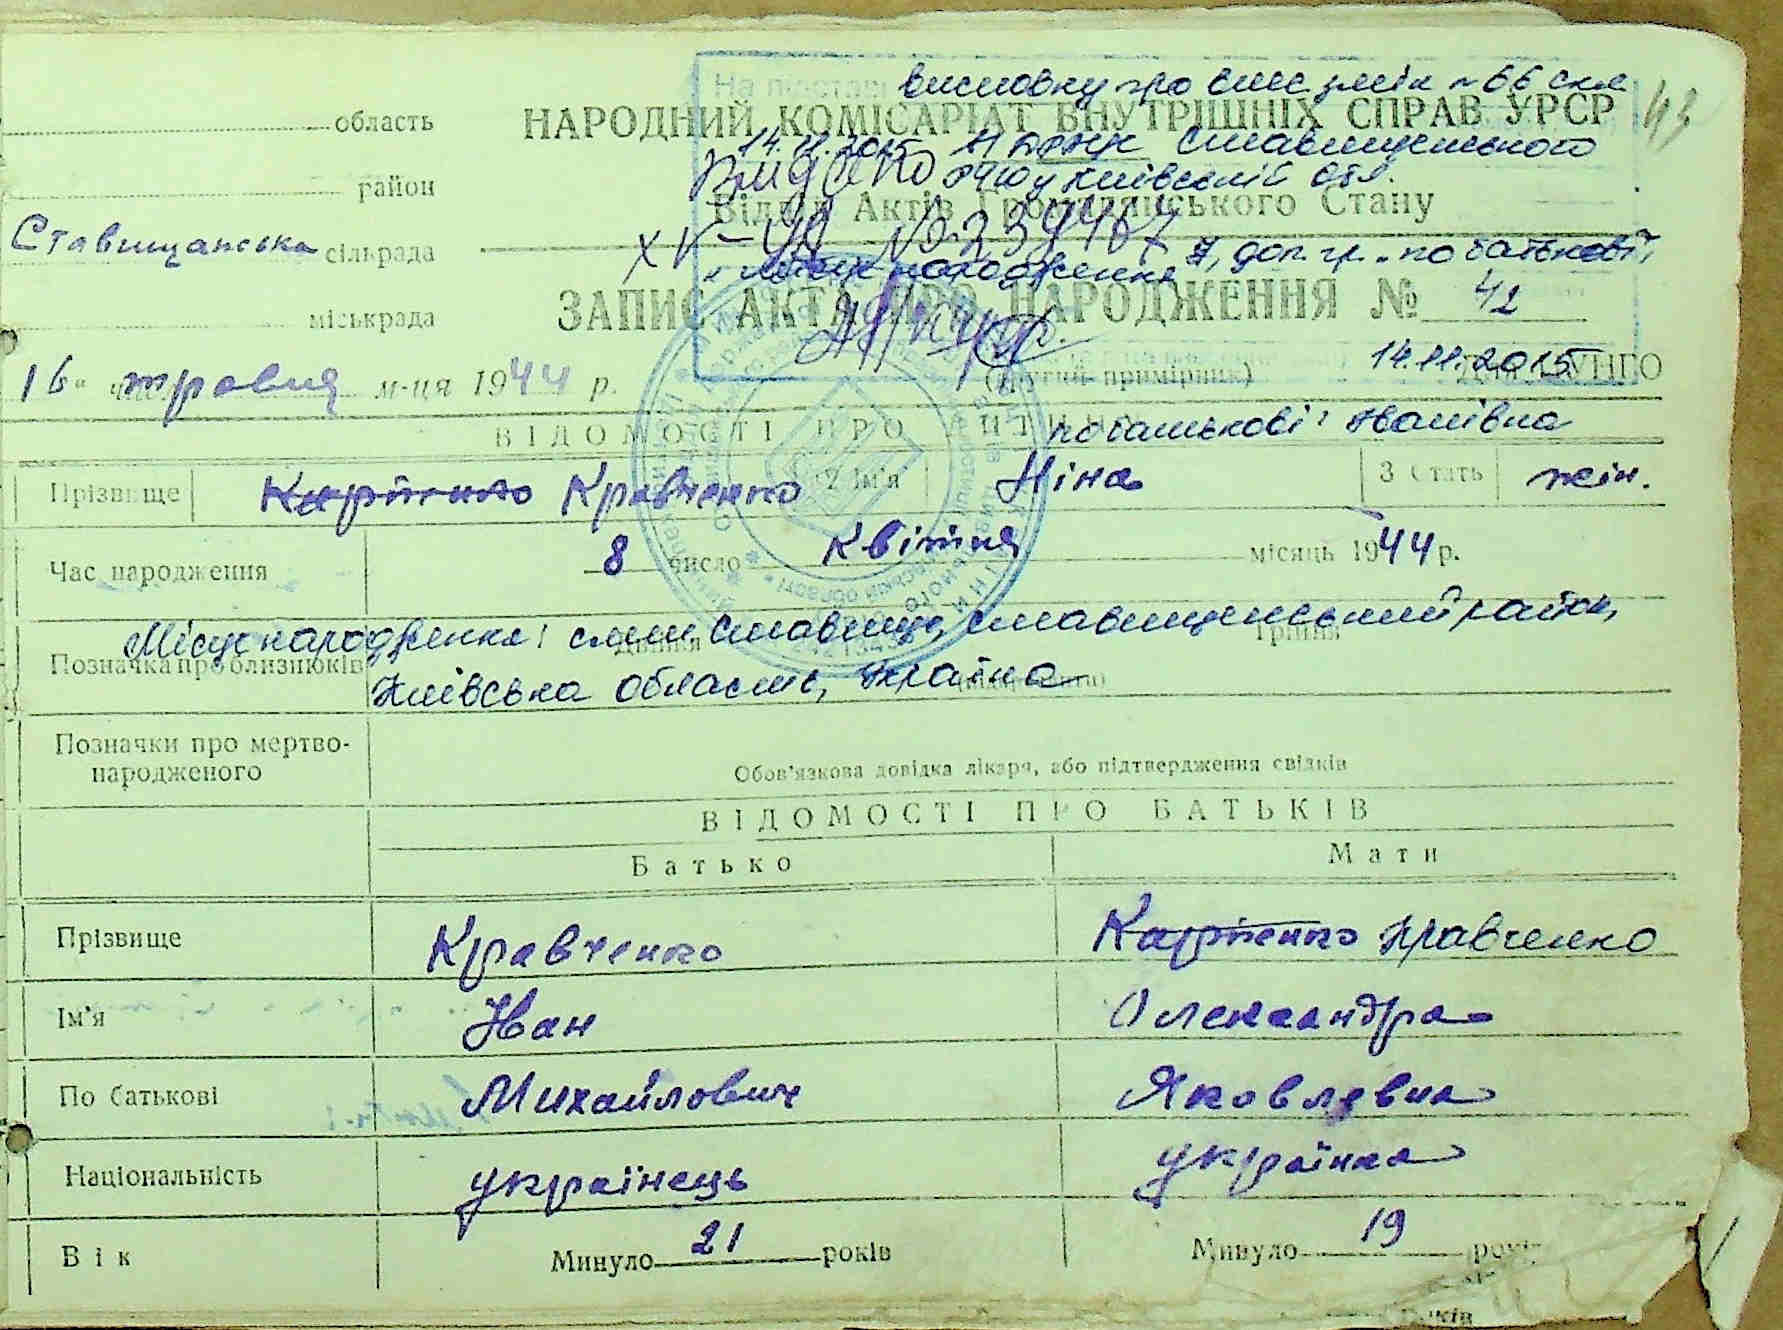 висновку про внес. змін №66 скл.
область НАРОДНИЙ КОМІСАРІАТ ВНУТРІШНІХ СПРАВ УРСР
14.11.2015 Ставищенського
район Видано Київській обл.
Відділ Актів Громадянського Стану
Ставищанська сільрада
, доп. гр. „по батькові",
„місце народження"
міськрада ЗАПИС АКТА ПРО НАРОДЖЕННЯ № 42
14.11.2015
16 травня м-ця 1944 р. (другий примірник)
ВІДОМОСТІ ПРО
по батькові: Іванівна
Прізвище Карпенко Кравченко 2 Ім'я Ніна 3 Стать жін.
Час народження 8 число Квітня місяць 1944 р.
Місце народження: смт Ставище, Ставищенський район,
Позначка про близнюків Двійня Трійня
Київська область, Україна
Позначки про мертво-
народженого
Обов'язкова довідка лікаря, або підтвердження свідків
ВІДОМОСТІ ПРО БАТЬКІВ
Батько Мати
Прізвище Кравченко Карпенко Кравченко
Ім'я Іван Олександра
По батькові Михайлович Яковлевна
Національність українець українка
Вік Минуло 21 років Минуло 19 років